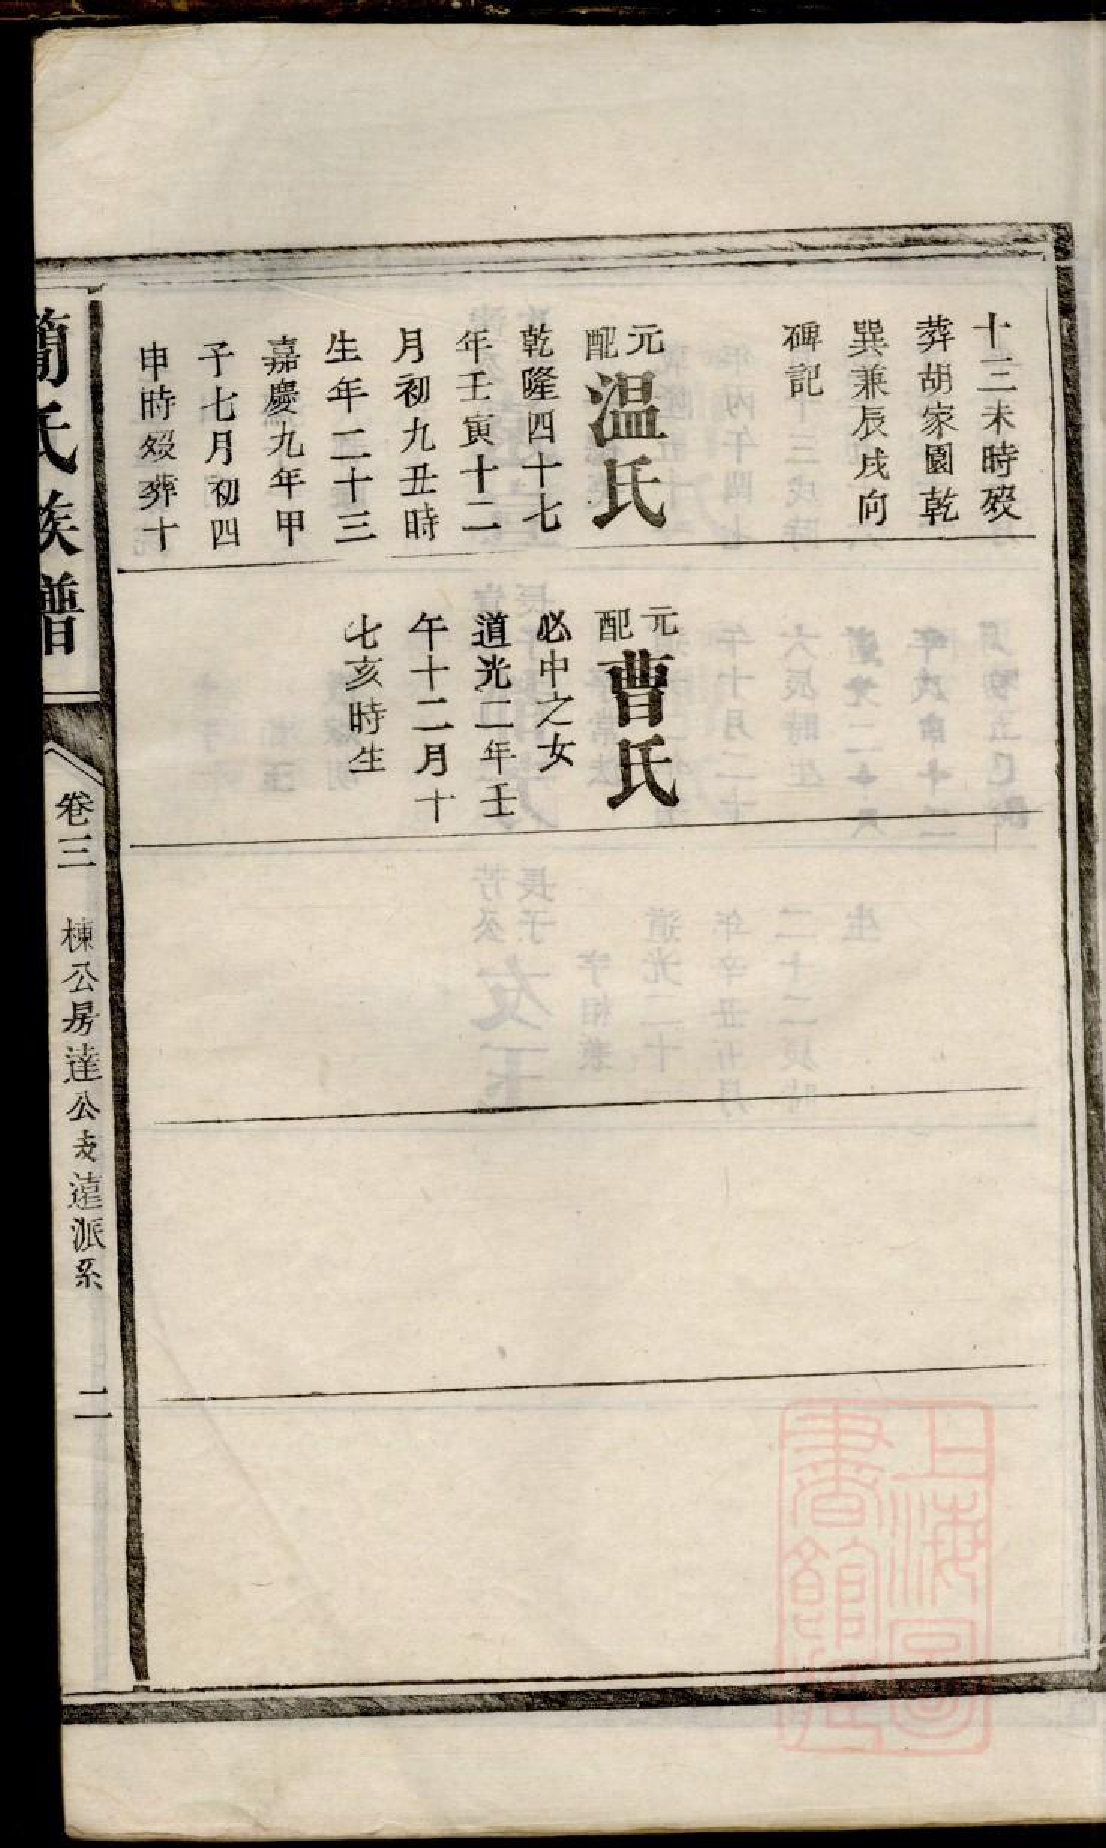 十三未時歿
葬胡家園乾
巽兼辰戌向
碑記
元配温氏
乾隆四十七
年壬寅十二
月初九丑時
生年二十三
嘉慶九年甲
子七月初四
申時歿葬十
元配曹氏
必中之女
道光二年壬
午十二月十
七亥時生
簡氏族譜
卷三
棟公房達公支遠派系
二
上海圖
書館藏